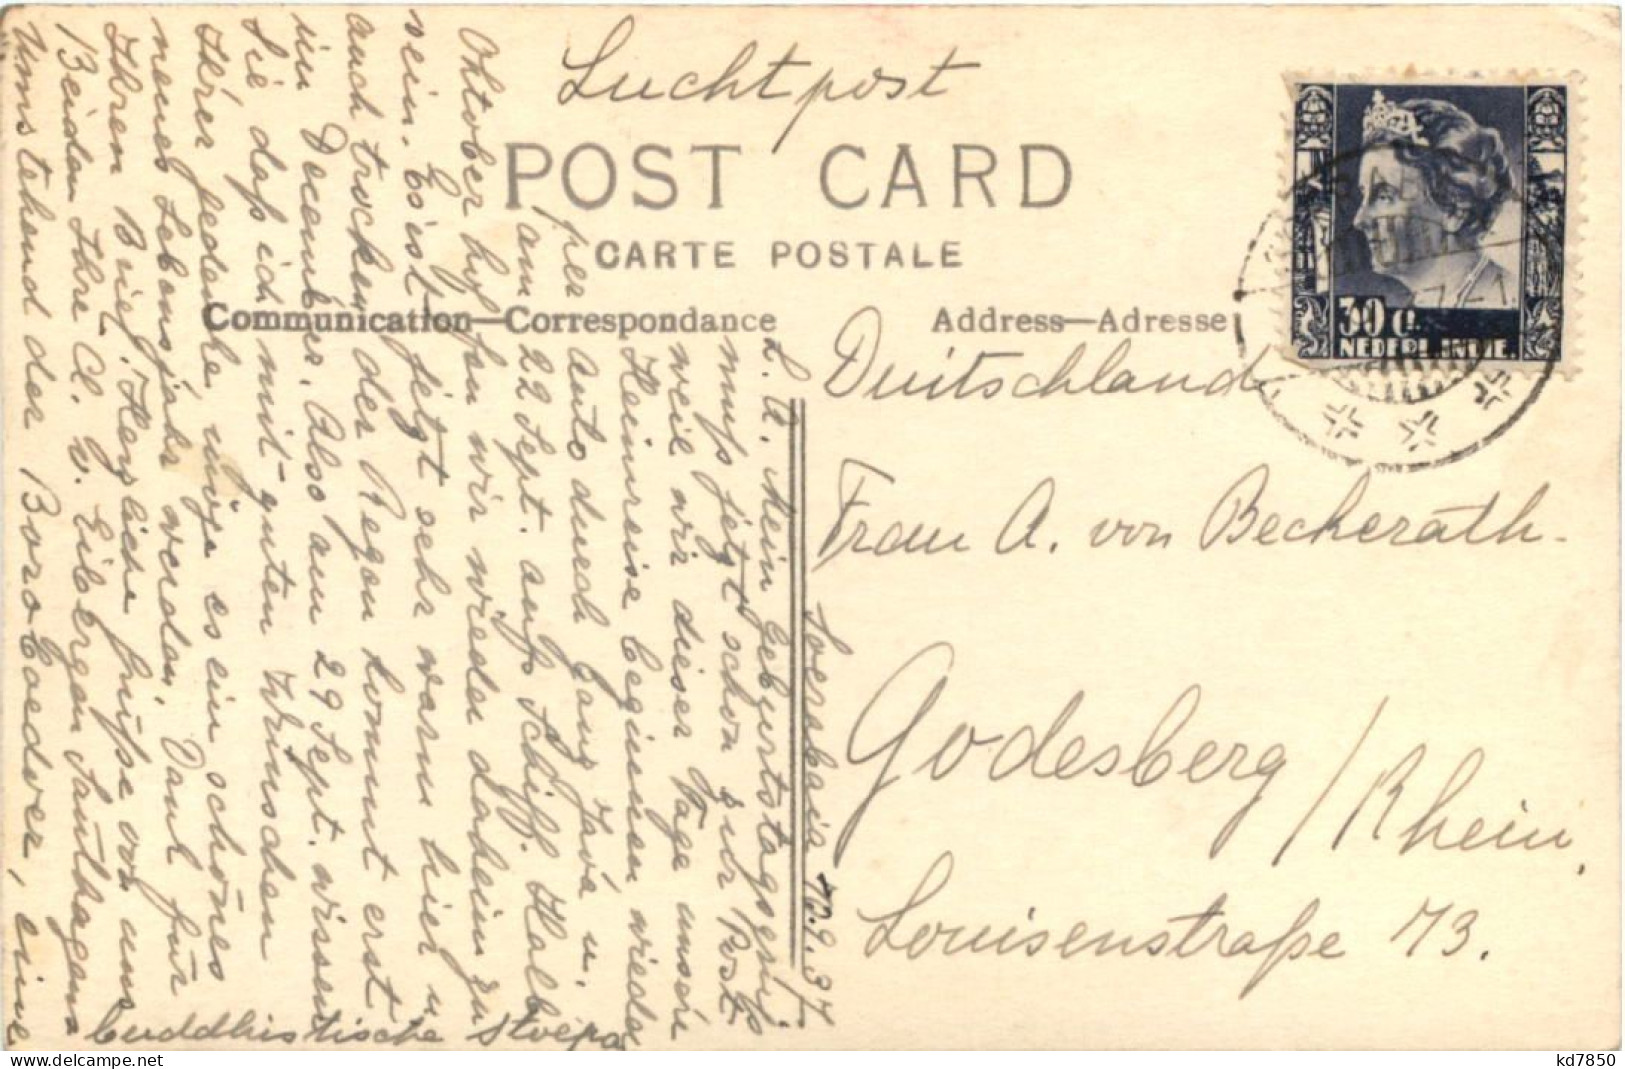 Luchtpost
POST CARD
CARTE POSTALE
Communication—Correspondance
Address—Adresse
30 C.
NEDERL. INDIE.
Duitschland
Frau A. von Beckerath-
Godesberg / Rhein,
Louisenstraße 73.
Soerabaia 13.9.37
L. A. Mein Geburtstagsgruß
muß jetzt schon zur Post
weil wir dieser Tage unsere
Heimreise beginnen wieder
per Auto durch ganz Java u.
am 22 Sept. aufs Schiff. Halb
Oktober hoffen wir wieder daheim zu
sein. Es ist jetzt sehr warm hier u
auch trocken der Regen kommt erst
im December. Also am 29 Sept. wissen
Sie daß ich mit guten Wünschen
Ihrer gedenke möge es ein schönes
neues Lebensjahr werden. Dank für
Ihren Brief. Herzliche Grüße von uns
Beiden Ihre Cl. v. Eibergen Santhagens
Umstehend der Boroboedoer, eine
buddhistische Stoepa
kd7850